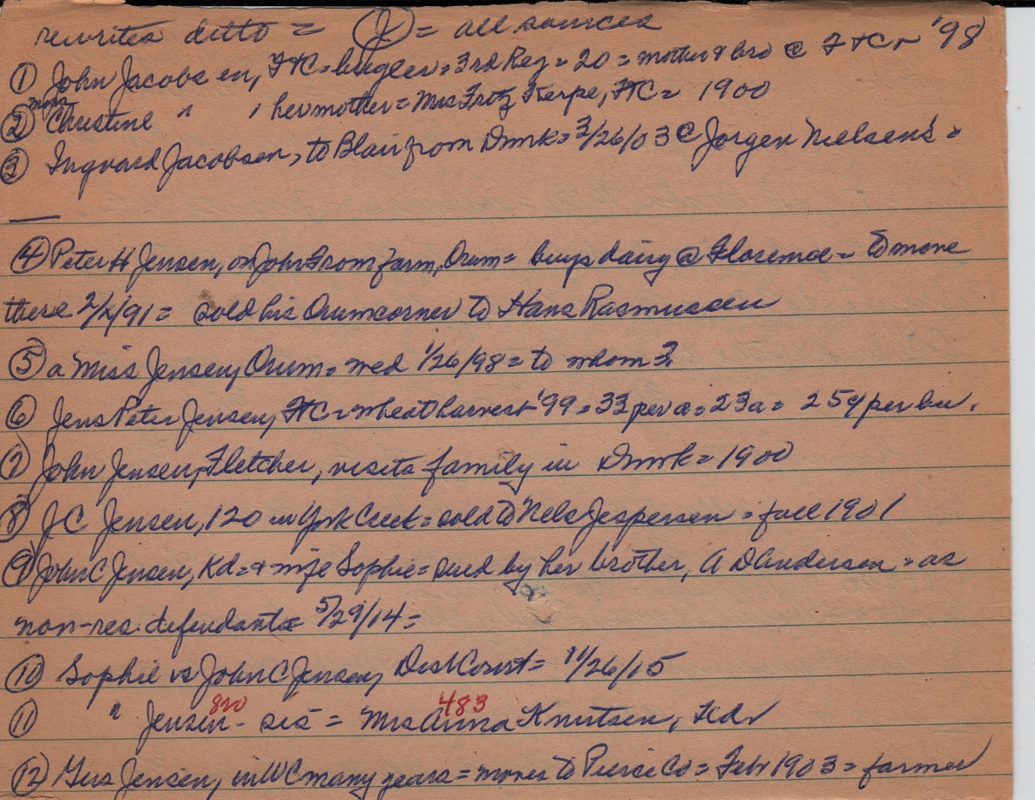 rewrites ditto = (J) = all sources
① John Jacobsen, FtC = bugler = 3rd Reg = 20 = mother & bro @ FtC = '98
② Mrs Christine " , her mother = Mrs Fritz Kerpe, FtC = 1900
③ Ingvard Jacobsen, to Blair from Dmrk = 3/26/03 @ Jorgen Nielsens =
④ Peter H Jensen, on John From farm, Orum = buys dairy @ Florence = to move
there 2/x/91 = sold his Orum corner to Hans Rasmussen
⑤ a Miss Jensen, Orum = wed 1/26/98 = to whom?
⑥ Jens Peter Jensen, FtC = wheat harvest '99 = 33 per a = 23a = 259 per bu.
⑦ John Jensen, Fletcher, visits family in Dmrk = 1900
⑧ J C Jensen, 120 in York Creek = sold to Nels Jespersen = fall 1901
⑨ John C Jensen, Kd = & wife Sophie = sued by her brother, A D Anderson = as
non-res. defendants = 5/29/14 =
⑩ Sophie vs John C Jensen, Dist Court = 11/26/15
820 483
⑪ " Jensen - sis = Mrs Anna Knutsen, Kd
⑫ Gus Jensen, in WC many years = moves to Pierce Co = Feb 1903 = farmer